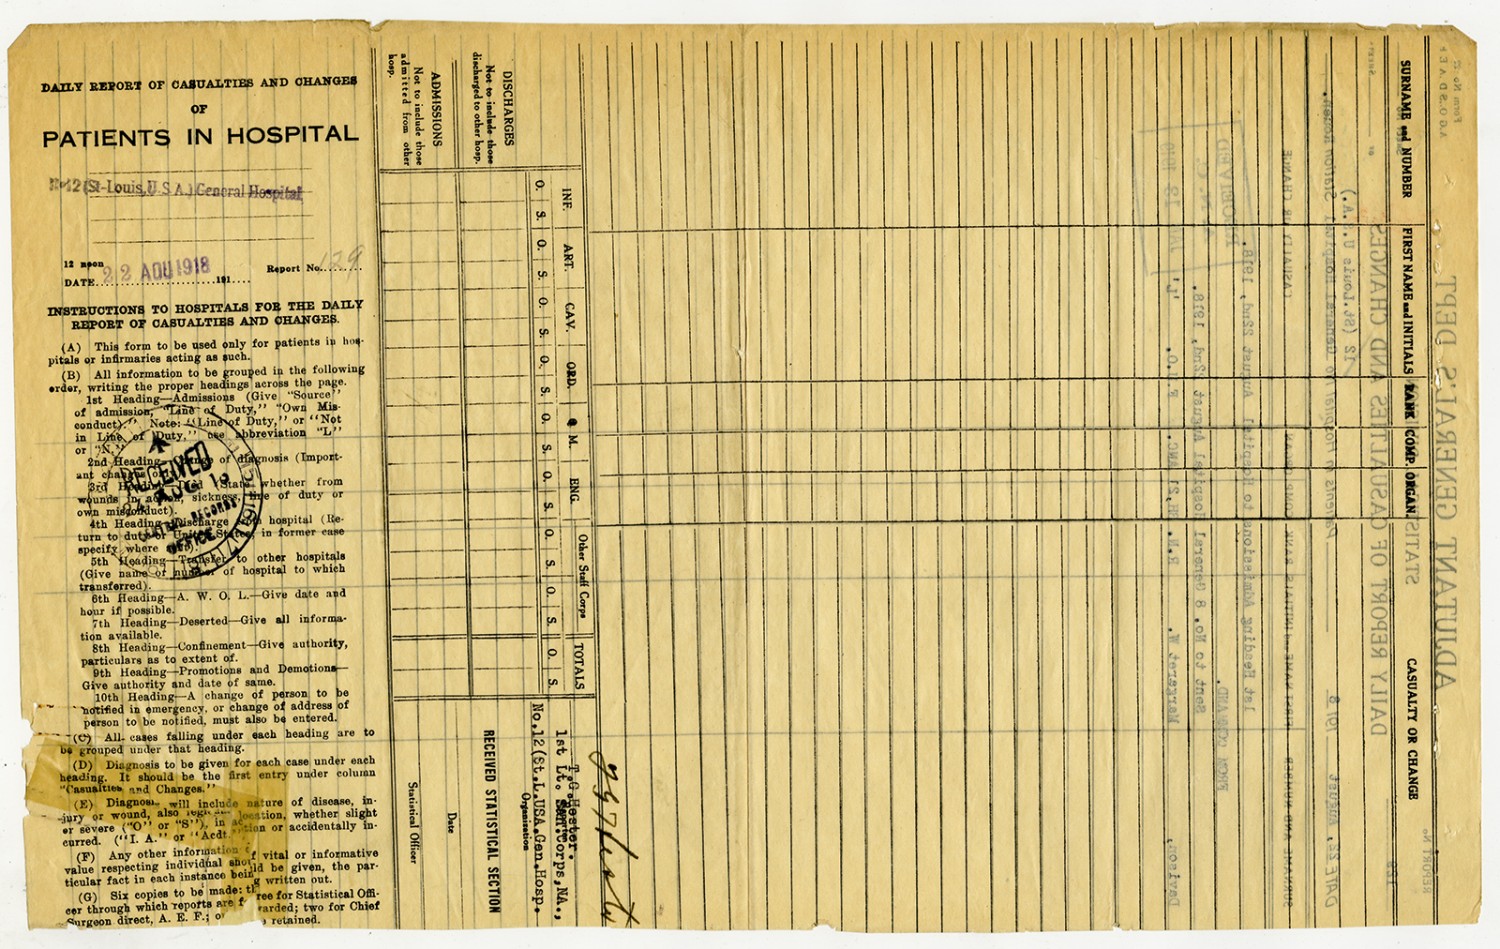 DAILY REPORT OF CASUALTIES AND CHANGES
OF
PATIENTS IN HOSPITAL
No 12 (St-Louis, U.S.A.) General Hospital
12 noon
DATE 22 AOU 1918 191.... Report No. 129
INSTRUCTIONS TO HOSPITALS FOR THE DAILY
REPORT OF CASUALTIES AND CHANGES.
(A) This form to be used only for patients in hos-
pitals or infirmaries acting as such.
(B) All information to be grouped in the following
order, writing the proper headings across the page.
1st Heading—Admissions (Give "Source"
of admission, "Line of Duty," "Own Mis-
conduct)." Note: "Line of Duty," or "Not
in Line of Duty," use abbreviation "L"
or "N."
2nd Heading—Change of diagnosis (Import-
ant changes only).
3rd Heading—Died (State whether from
wounds in action, sickness, line of duty or
own misconduct).
4th Heading—Discharge from hospital (Re-
turn to duty or United States, in former case
specify where sent).
5th Heading—Transfer to other hospitals
(Give name or number of hospital to which
transferred).
6th Heading—A. W. O. L.—Give date and
hour if possible.
7th Heading—Deserted—Give all informa-
tion available.
8th Heading—Confinement—Give authority,
particulars as to extent of.
9th Heading—Promotions and Demotions—
Give authority and date of same.
10th Heading—A change of person to be
notified in emergency, or change of address of
person to be notified, must also be entered.
(C) All cases falling under each heading are to
be grouped under that heading.
(D) Diagnosis to be given for each case under each
heading. It should be the first entry under column
"Casualties and Changes."
(E) Diagnosis will include nature of disease, in-
jury or wound, also location, whether slight
or severe ("O" or "S"), in action or accidentally in-
curred. ("I. A." or "Acdt.
(F) Any other information of vital or informative
value respecting individual should be given, the par-
ticular fact in each instance being written out.
(G) Six copies to be made: three for Statistical Offi-
cer through which reports are forwarded; two for Chief
Surgeon direct, A. E. F.; retained.
RECEIVED
AUG
CENTRAL RECORDS
OFFICE
ADMISSIONS
Not to include those
admitted from other
hosp.
DISCHARGES
Not to include those
discharged to other hosp.
INF. O. S.
ART. O. S.
CAV. O. S.
ORD. O. S.
Q M. O. S.
ENG. O. S.
Other Staff Corps O. S. O. S.
TOTALS O. S.
RECEIVED STATISTICAL SECTION
Date
Statistical Officer
T.G.Hester.
1st Lt. San.Corps,NA.,
No.12(St.L.USA.Gen.Hosp.
Organization
SURNAME and NUMBER FIRST NAME and INITIALS RANK COMP. ORGAN. CASUALTY OR CHANGE
ADJUTANT GENERAL'S DEPT
STATIS
DAILY REPORT OF CASUALTIES AND CHANGES
REPORT No 129
12 (St. Louis U.S.A.)
Patients in Hospital No General Hospital Station
DATE 22, August 1918
SURNAME AND NUMBER FIRST NAME and INITIALS RANK COMP. ORGAN CASUALTY OR CHANGE
1st Heading Admissions to Hospital August 22nd, 1918.
FROM COMMAND.
Sent to No. 8 General Hospital August 22nd, 1918.
Davison, Margaret W. R.N. BH.21 ANC. F.U.O. "L"